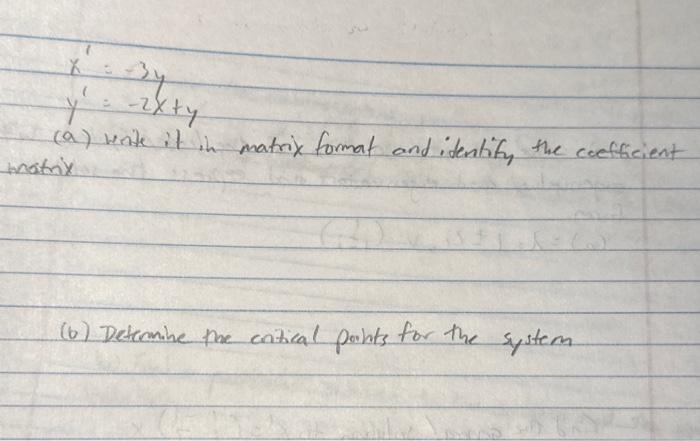 x' = -3y
y' = -2x+y
(a) write it in matrix format and identify the coefficient
matrix
(b) Determine the critical points for the system